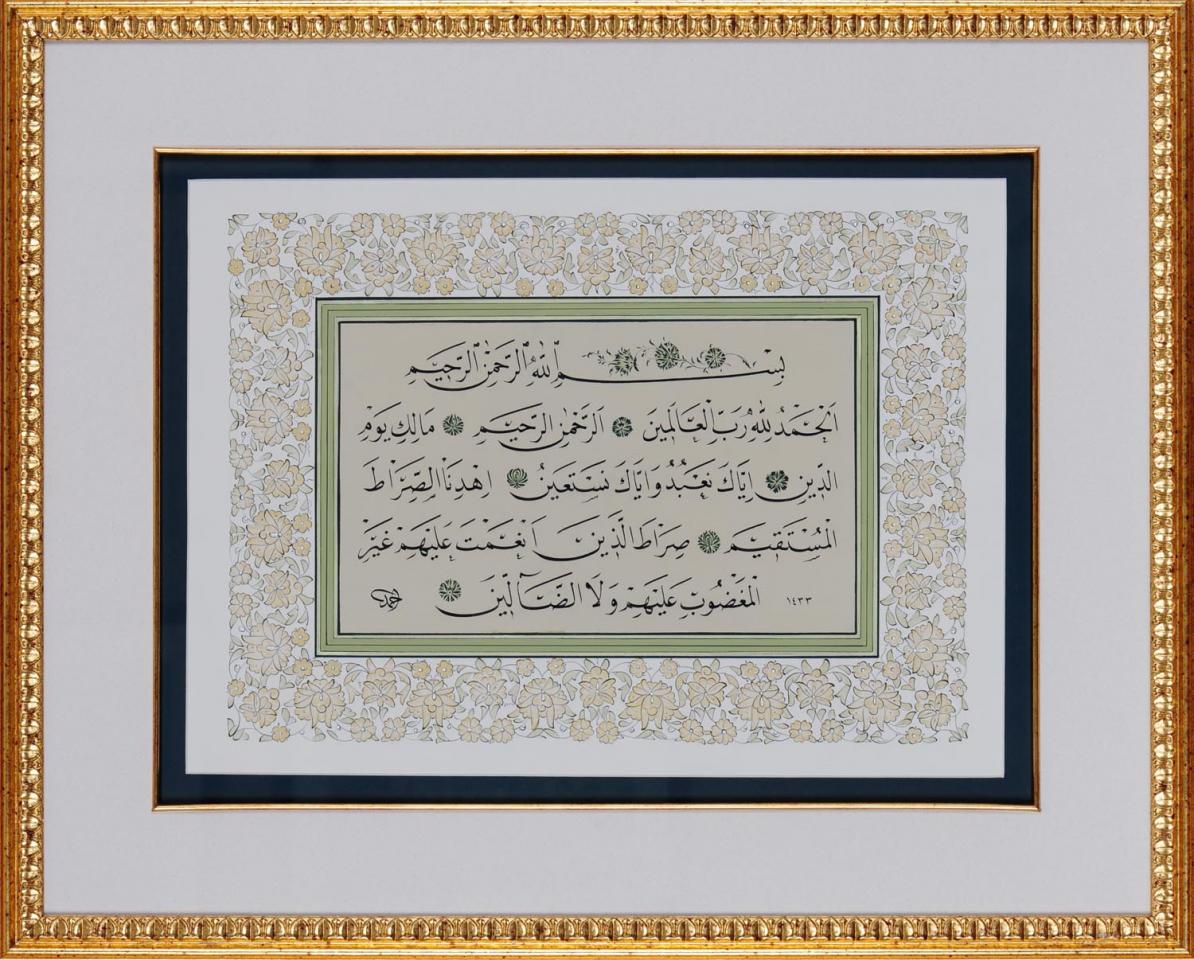 بِسْمِ اللّٰهِ الرَّحْمٰنِ الرَّحِيمِ
اَلْحَمْدُ لِلّٰهِ رَبِّ الْعَالَمِينَ اَلرَّحْمٰنِ الرَّحِيمِ مَالِكِ يَوْمِ
الدِّينِ اِيَّاكَ نَعْبُدُ وَاِيَّاكَ نَسْتَعِينُ اِهْدِنَا الصِّرَاطَ
الْمُسْتَقِيمَ صِرَاطَ الَّذِينَ اَنْعَمْتَ عَلَيْهِمْ غَيْرِ
١٤٣٣ الْمَغْضُوبِ عَلَيْهِمْ وَلَا الضَّآلِّينَ